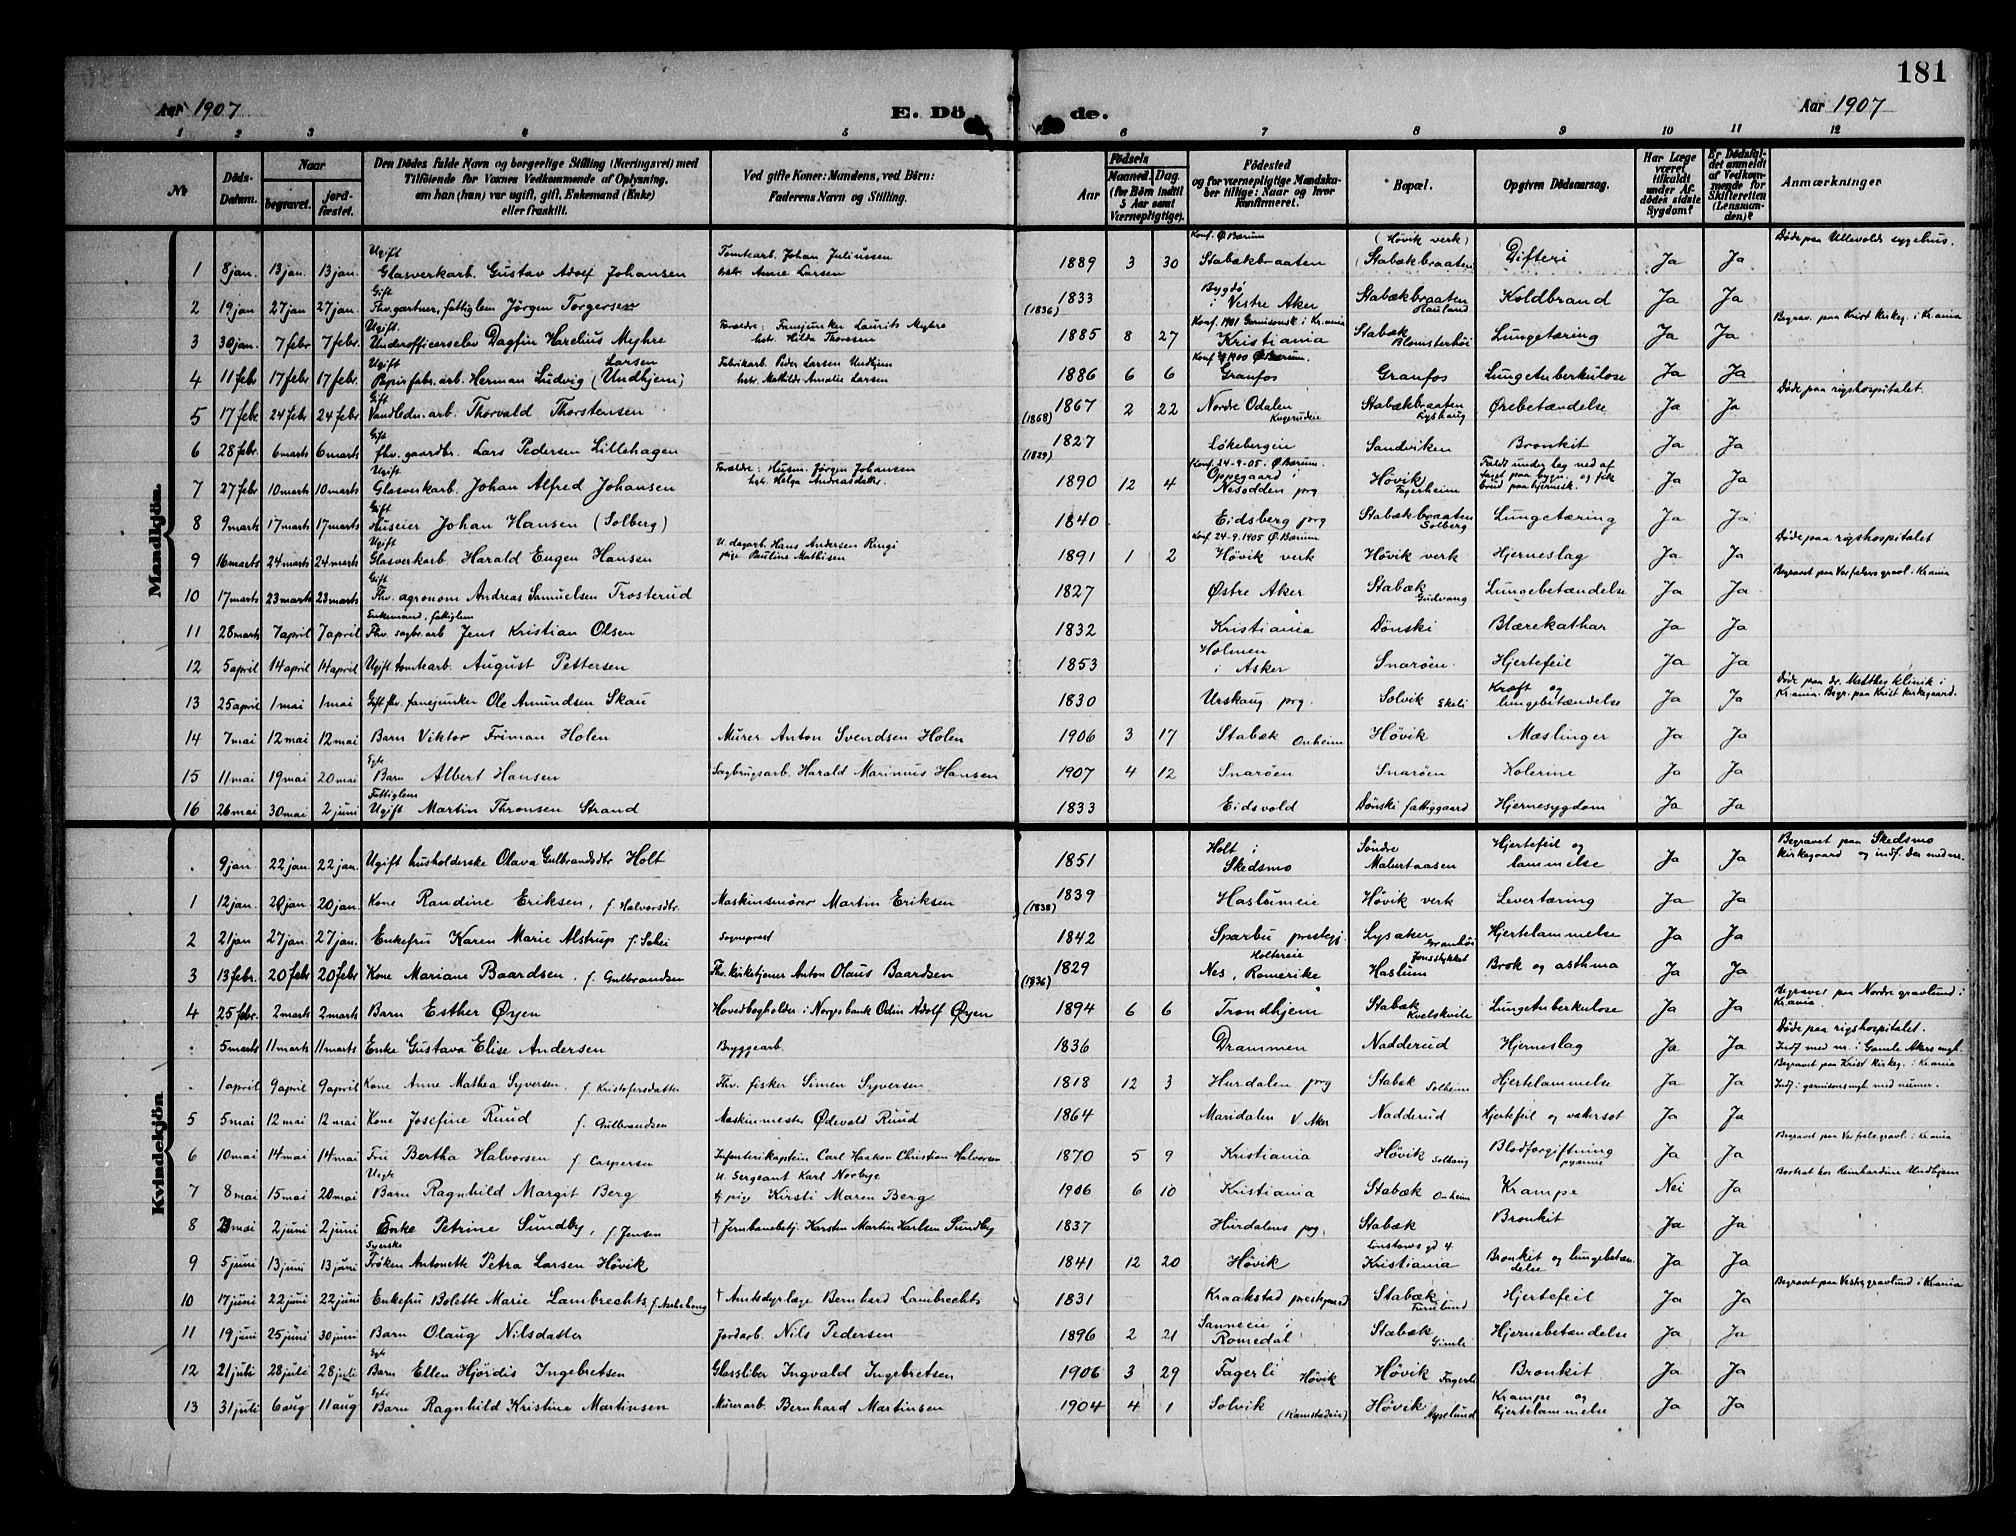 181
Aar 1907 E. Döde. Aar 1907
1 2 3 4 5 6 7 8 9 10 11 12
No
Döds-Datum.
Naar
begravet. jordfæstet.
Den Dödes fulde Navn og borgerlige Stilling (Næringsvei) med Tilföiende for Voxnes Vedkommende af Oplysning, om han (hun) var ugift, gift, Enkemand (Enke) eller fraskilt.
Ved gifte Koner: Mandens, ved Börn: Faderens Navn og Stilling.
Födsels
Aar Maaned. Dag.
(for Börn indtil 5 Aar samt Værnepligtige).
Födested og for værnepligtige Mandskaber tillige: Naar og hvor konfirmeret.
Bopæl.
Opgiven Dödsaarsag.
Har Læge været tilkaldt under Afdödes sidste Sygdom?
Er Dödsfaldet anmeldt af Vedkommende for Skifteretten (Lensmanden)?
Anmærkninger
Mandkjön.
1 8 jan. 13 jan. 13 jan. Ugift Glasverkarb. Gustav Adolf Johansen Tomtearb. Johan Juliussen hstr. Anne Larsen 1889 3 30 Konf. Ø. Bærum Stabækbraaten (Høvik verk) (Stabækbraaten Difteri Ja Ja Døde paa Ullevolds sygehus.
2 19 jan 27 jan 27 jan. Gift Fhv. gartner, fattiglem Jörgen Torgersen 1833 (1836) Bygdö i Vestre Aker Stabækbraaten Hauland Koldbrand Ja Ja
3 30 jan. 7 febr 7 febr. Ugift. Underofficerselev Dagfin Harelius Myhre Forældre: Fanejunker Laurits Myhre hstr. Hilda Thoresen 1885 8 27 Konf. 1901 Garnisonsk. i Krania Kristiania Stabæk Blomsterhöi Lungetæring Ja Ja Begrav. paa Krist Kirkeg. i Krania
4 11 febr 17 febr 17 febr. Ugift Papirfabr. arb. Herman Ludvig Larsen (Undhjem) Fabrikarb. Peder Larsen Undhjem hstr. Mathilde Amalie Larsen 1886 6 6 Konf. 1900 Ø. Bærum. Granfos Granfos Lungetuberkulose Ja Ja
5 17 febr. 24 febr 24 febr. Gift Vandledn. arb. Thorvald Thorstensen 1867 (1868) 2 22 Nordre Odalen Stabækbraaten Lyshaug Ørebetændelse Ja Ja Døde paa rigshospitalet.
6 28 febr. 6 marts 6 marts Gift fhv. gaardbr. Lars Pedersen Lillehagen 1827 (1829) Løkebergeie Sandviken Bronkit Ja Ja
7 27 febr 10 marts 10 marts Ugift Glasverkarb. Johan Alfred Johansen Forældre: Husm. Jørgen Johansen hstr. Helga Andreasdatter. 1890 12 4 Konf. 24-9-05 i Ø. Bærum. Oppegaard i Nesodden prg Høvik Fagerheim Faldt under leg ned af taget paa bygn. og fik brud paa hjernesk. Ja Ja
8 9 marts 17 marts 17 marts Gift Huseier Johan Hansen (Solberg) 1840 Eidsberg prg Stabækbraaten Solberg Lungetæring Ja Ja
9 16 marts 24 marts 24 marts Ugift Glasverkarb. Harald Eugen Hansen U. dagarb. Hans Andersen Ringi pige Pauline Mathisen 1891 1 2 Konf. 24-9-1905 Ø. Bærum Høvik verk Høvik verk Hjerneslag Ja Ja Døde paa rigshospitalet
10 17 marts 23 marts 23 marts Gift Fhv. agronom Andreas Samuelsen Trosterud 1827 Østre Aker Stabæk Gudvang Lungebetændelse Ja Ja Begravet paa Vorfrelsers gravl. i Krania
11 28 marts 7 april 7 april Enkemand, fattiglem Fhv. sagbr. arb Jens Kristian Olsen 1832 Kristiania Dønski Blærekathar Ja Ja
12 5 april 14 april 14 april Ugift tomtearb. August Pettersen 1853 Holmen i Asker Snarøen Hjertefeil Ja Ja
13 25 april 1 mai 1 mai Gift fhv. fanejunker Ole Amundsen Skau 1830 Urskaug prg. Solvik Ekeli Kræft og lungebetændelse Ja Ja Døde paa dr. Matthes klinik i Krania. Begr. paa Krist Kirkegaard.
14 7 mai 12 mai 12 mai Barn Viktor Friman Holen Murer Anton Svendsen Holen 1906 3 17 Stabæk Onheim Høvik Mæslinger Ja Ja
15 11 mai 19 mai 20 mai Egte Barn Albert Hansen Sagbrugsarb. Harald Marinus Hansen 1907 4 12 Snarøen Snarøen Kolerine Ja Ja
16 26 mai 30 mai 2 juni Fattiglem Ugift Martin Thronsen Strand 1833 Eidsvold Dønski fattiggaard Hjernesygdom Ja Ja
Kvindekjön
. 9 jan. 22 jan. 22 jan. Ugift husholderske Olava Gulbrandsdtr Holt 1851 Holt i Skedsmo Søndre Hjertefeil og lammelse Ja Ja Begravet paa Skedsmo kirkegaard og indf. der med nr.
1 12 jan. 20 jan. 20 jan. Kone Randine Eriksen, f. Halvorsdtr. Maskinsmører Martin Eriksen 1839 (1838) Haslumeie Høvik verk Levertæring Ja Ja
2 21 jan 27 jan. 27 jan. Enkefru Karen Marie Alstrup f. Schei Sogneprest 1842 Sparbu prestegj. Lysaker Granhöi Hjertelammelse Ja Ja
3 13 febr. 20 febr 20 febr Kone Mariane Baardsen, f. Gulbrandsen Fhv. kirketjener Anton Olaus Baardsen 1829 (1836) Holtereie Nes, Romerike Jonsstykket Haslum Brok og asthma Ja Ja
4 25 febr. 2 marts 2 marts Barn Esther Øyen Hovedbogholder i Norges bank Odin Adolf Øyen 1894 6 6 Trondhjem Stabæk Kvelskvile Lungetuberkulose Ja Ja Begravet paa Nordre gravlund i Krania
. 5 marts 11 marts 11 marts Enke Gustava Elise Andersen Bryggearb. 1836 Drammen Nadderud Hjerneslag Ja Ja Døde paa rigshospitalet. Indf med nr. i Gamle Akers mgh.
. 1 april 9 april 9 april Kone Anne Mathea Syversen f. Kristofersdatter Fhv. fisker Simen Syversen 1818 12 3 Hurdalen prg Stabæk Solheim Hjertelammelse Ja Ja Begravet paa Krist Kirkeg. i Krania Indf. i garnisonsmgh med numer.
5 5 mai 12 mai 12 mai Kone Josefine Ruud f. Gulbrandsen Maskinmester Ødevold Ruud 1864 Maridalen V. Aker Nadderud Hjertefeil og vatersot Ja Ja
6 10 mai 14 mai 14 mai Fru Bertha Halvorsen f Caspersen Infanterikaptein Carl Haakon Christian Halvorsen 1870 5 9 Kristiania Høvik Solhaug Blodforgiftning pyæmie Ja Ja Begravet paa Vorfrels. gravl. i Krania
7 8 mai 15 mai 20 mai Uegte Barn Ragnhild Margit Berg U. Sergeant Karl Norbye pige Kirsti Maren Berg 1906 6 10 Kristiania Stabæk Onheim Krampe Nei Ja Bortsat hos Reinhardine Undhjem
8 23 mai 2 juni 2 juni Enke Petrine Sundby, f. Jensen † Jernbanebetj. Karsten Martin Karlsen Sundby 1837 Hurdalens prg. Stabæk Bronkit Ja Ja
9 5 juni 13 juni 13 juni Syerske Frøken Antonette Petra Larsen Høvik 1841 12 20 Høvik Linstows gd 4 Kristiania Bronkit og lungebetændelse Ja Ja
10 17 juni 22 juni 22 juni Enkefru Bolette Marie Lambrechts † Amtsdyrlæge Bernhard Lambrechts 1831 Kraakstad prestegaard Stabæk Furulund Hjertefeil Ja Ja Begravet paa Vestre gravlund i Krania
11 19 juni 25 juni 30 juni Barn Olaug Nilsdatter Jordarb. Nils Pedersen 1896 2 21 Sanneeie i Romedal Stabæk Gimle Hjernebetændelse Ja Ja
12 21 juli 28 juli 28 juli Egte Barn Ellen Hjördis Ingebretsen Glassliber Ingvald Ingebretsen 1906 3 29 Fagerli Høvik Høvik Fagerli Bronkit Ja Ja
13 31 juli 6 aug 11 aug Egte Barn Ragnhild Kristine Martinsen Murerarb. Bernhard Martinsen 1904 4 1 Solvik (Ramstadeie) Høvik Krampe og hjertelammelse Ja Ja